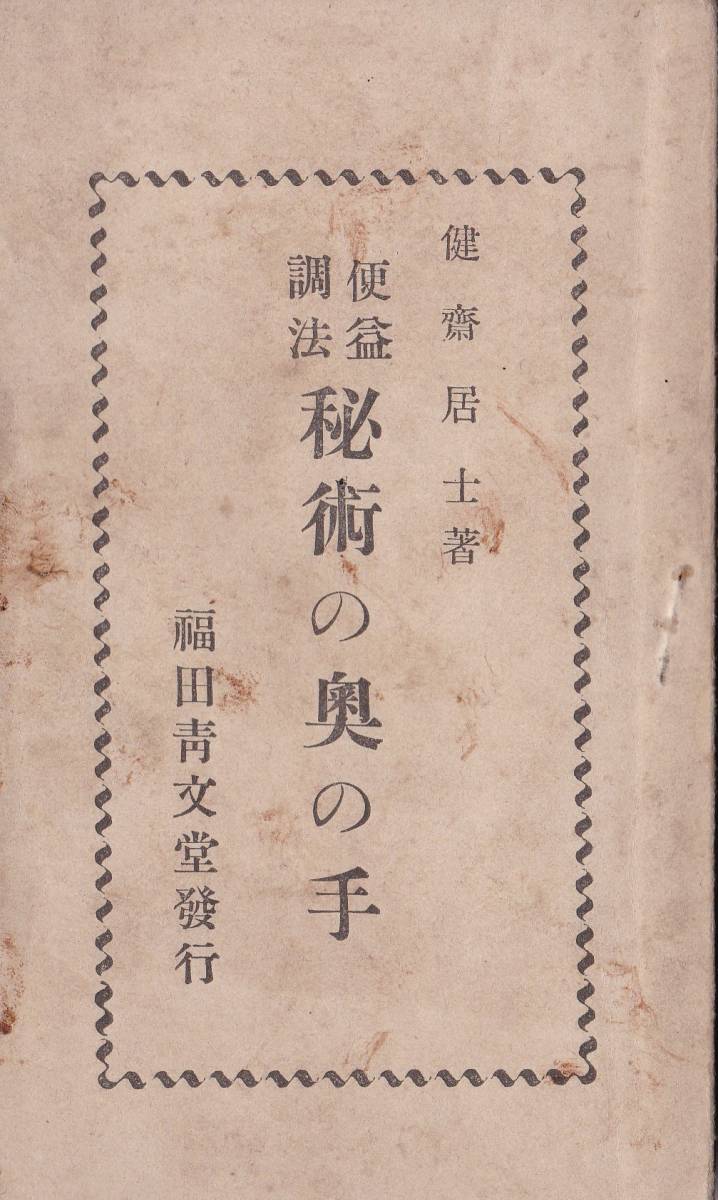 健齋居士著
便益
調法
秘術の奥の手
福田青文堂發行